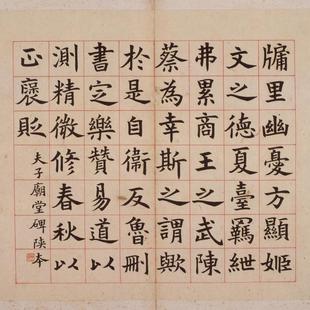 牖里幽憂方顯姬
文之德夏臺羈紲
弗累商王之武陳
蔡為幸斯之謂歟
於是自衛反魯刪
書定樂贊易道以
測精微修春秋以
正褒貶
夫子廟堂碑陝本